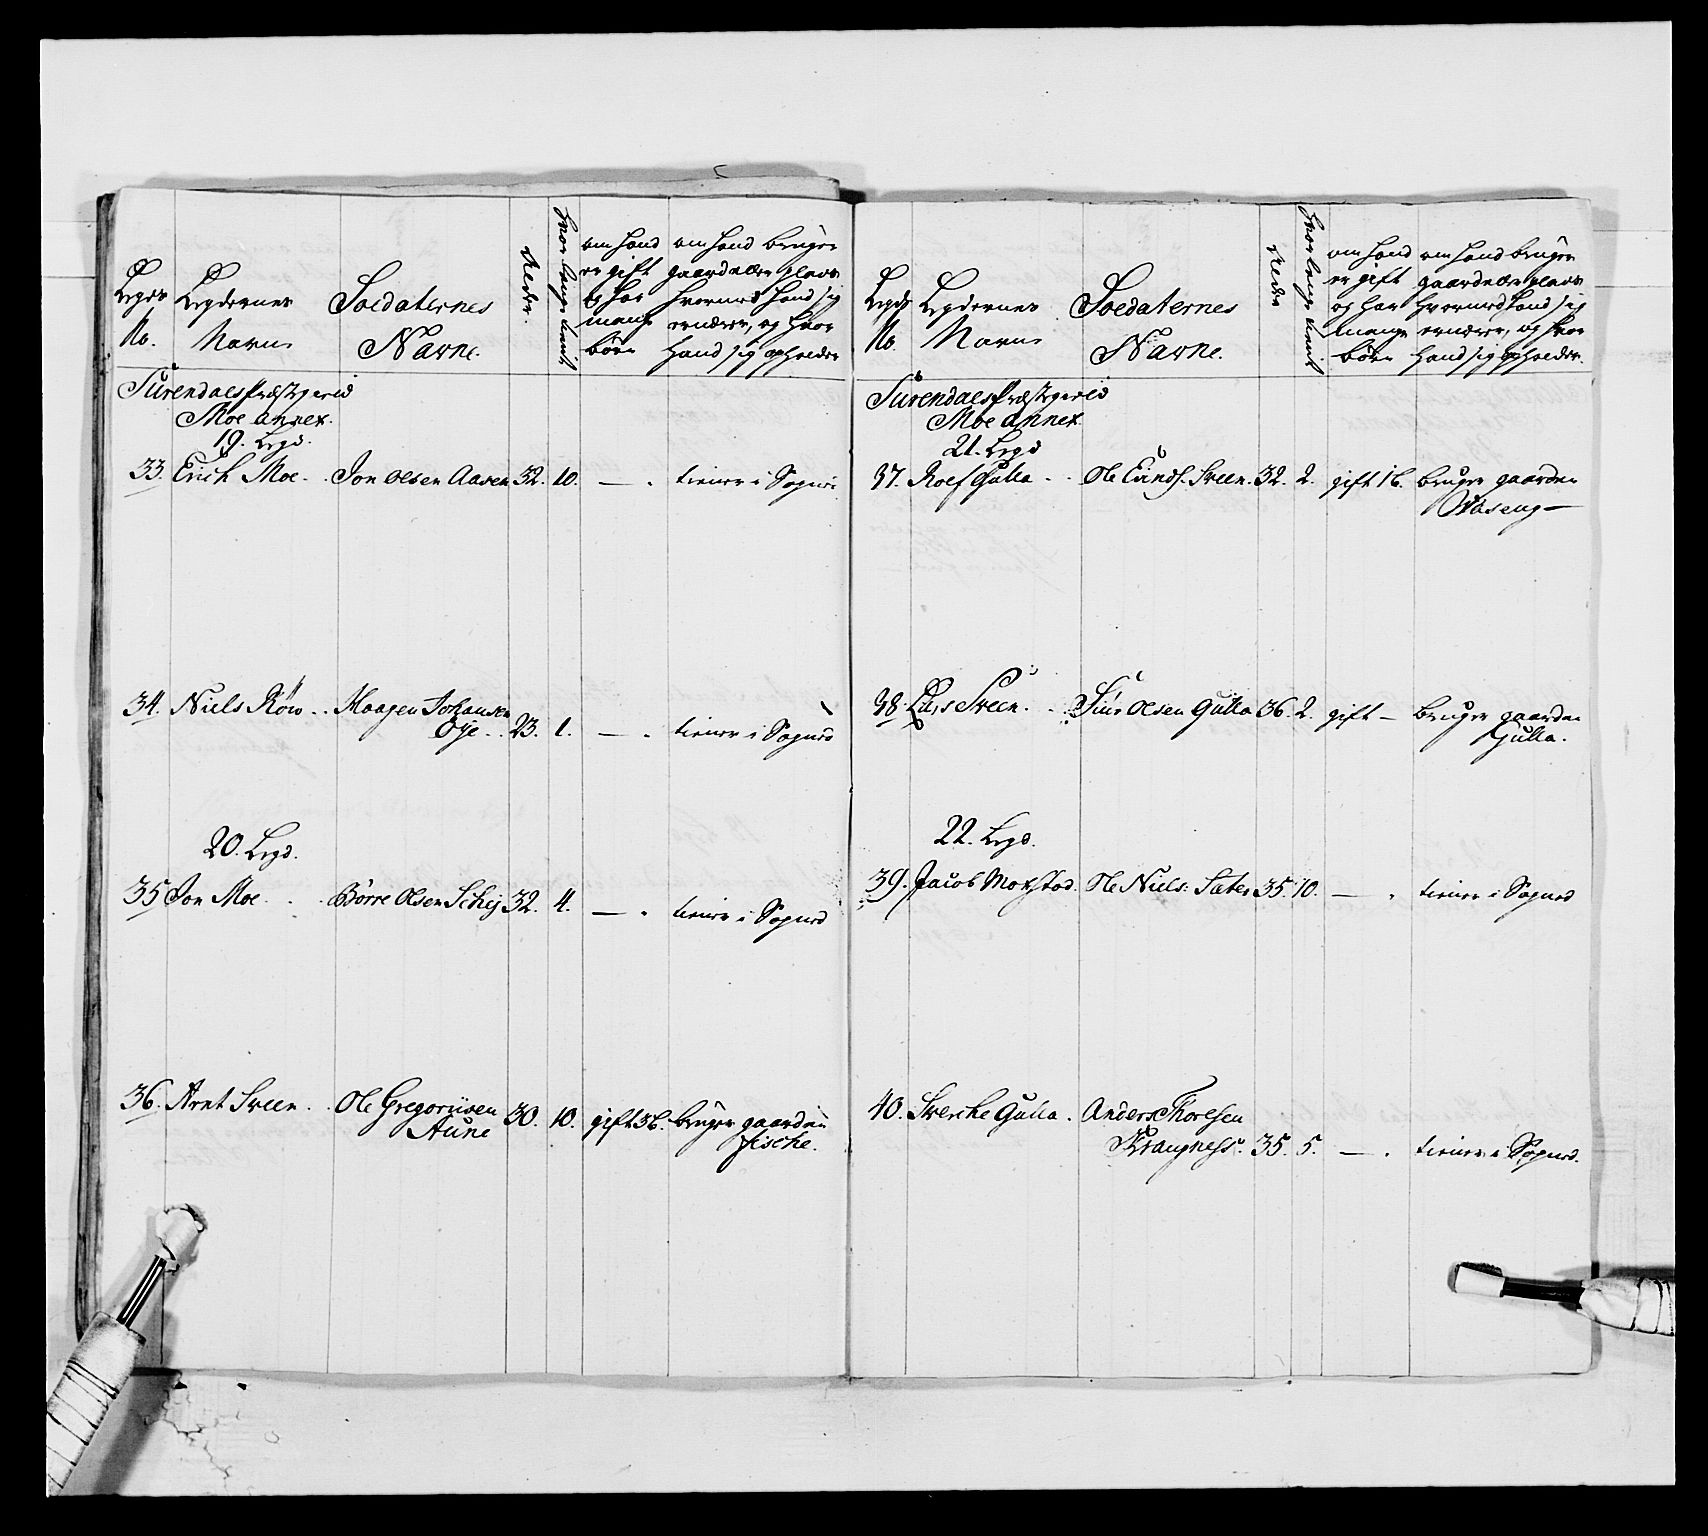 Legds No.
Legdernes Navne
Soldaternes Navne.
Alder.
hvor lenge tient
om hand er gift og har mange börn
om hand bruger gaard eller plads hvormed hand sig ernærer, og hvor hand sig opholder
Surendals Præstegield
Moe Annex.
19. Legd.
33. Erich Moe . . Jon Olsen Aasen 32. 10. — . tiener i Sognet
34. Niels Röw . . Haagen Johansen
Öye . . 23. 1. — . tiener i Sognet
20. Legd.
35 Jon Moe . . . Börre Olsen Schej 32. 4. — . tiener i Sognet
36. Arnt Sveen . . Ole Gregoriusen
Aune 30. 10. gift 3 b. bruger gaarden
Fische.
Legds No.
Legdernes Navne
Soldaternes Navne.
Alder
hvor lenge tient
om hand er gift og har mange börn
om hand bruger gaard eller plads hvormed hand sig ernærer, og hvor hand sig opholder.
Surendals Præstegield
Moe Annex.
21. Legd
37. Roel Gulla . . Ole Einds. Sveen. 32. 2. gift 1 b. bruger gaarden
Aaseng —
38. Lars Sveen. . . Siur Olsen Gulla 36. 2. gift — bruger gaarden
Gulla.
22. Legd.
39. Jacob Mogstad. Ole Niels: Sæter 35. 10. — . tiener i Sognet
40. Sverche Gulla . Anders Thoresen
Krangness. 35. 5. — . tiener i Sognet.